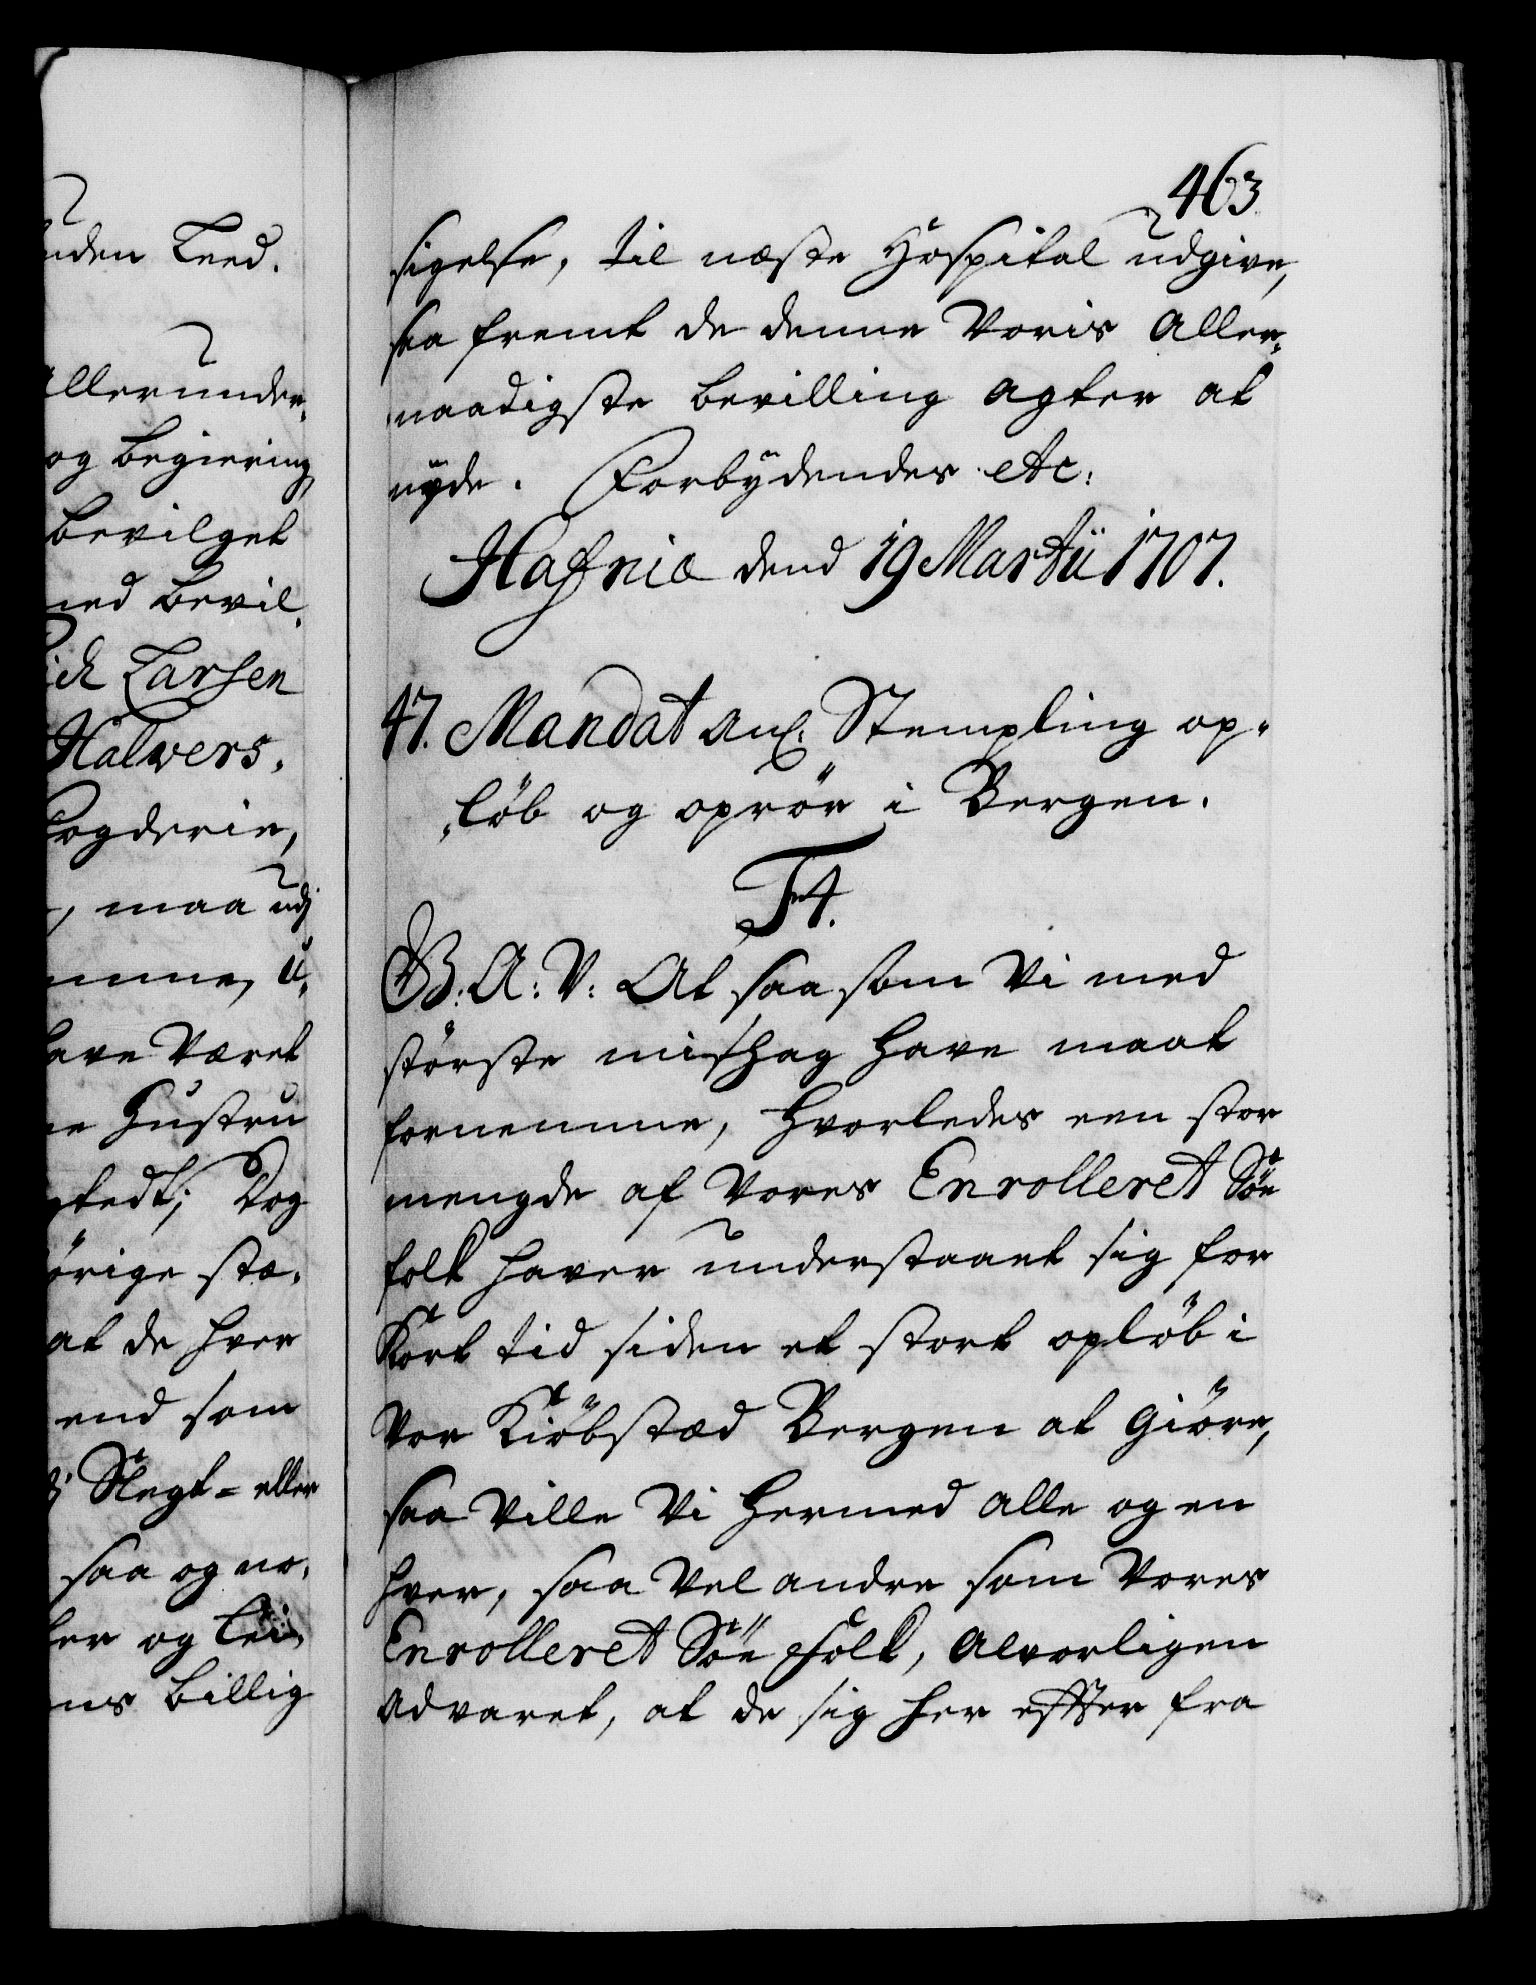 nden Leed.
Allerunder-
og begiering
bevilget
med bevil-
ich Larsen
Halvers-
Fogderie,
, maa udj
mme, u-
have Været
e Hustru
gtedt; Dog
örige stæ-
at de hver
end som
Slegt= eller
saa og no-
er og Lei-
ns billig
463
sigelse, til næste Hospital udgive,
saa fremt de denne Voris Aller-
naadigste bevilling agter at
nyde. Forbydendes etc:
Hafniæ dend 19 Martii 1707.
47. Mandat anl: Stempling op-
löb og oprör i Bergen.
F4.
G: A: V: At saasom Vi med
störste mishag have maat
fornemme, hvorledes een stor
mengde af Vores Enrolleret Söe
folk haver understaaet sig for
Kort tid siden et stort oplöb i
Vor Kiöbstæd Bergen at giöre,
saa Ville Vi hermed alle og en
hver, saa Vel andre som Vores
Enrolleret Söe Folk, Alvorligen
Advaret, at de sig her effter fra